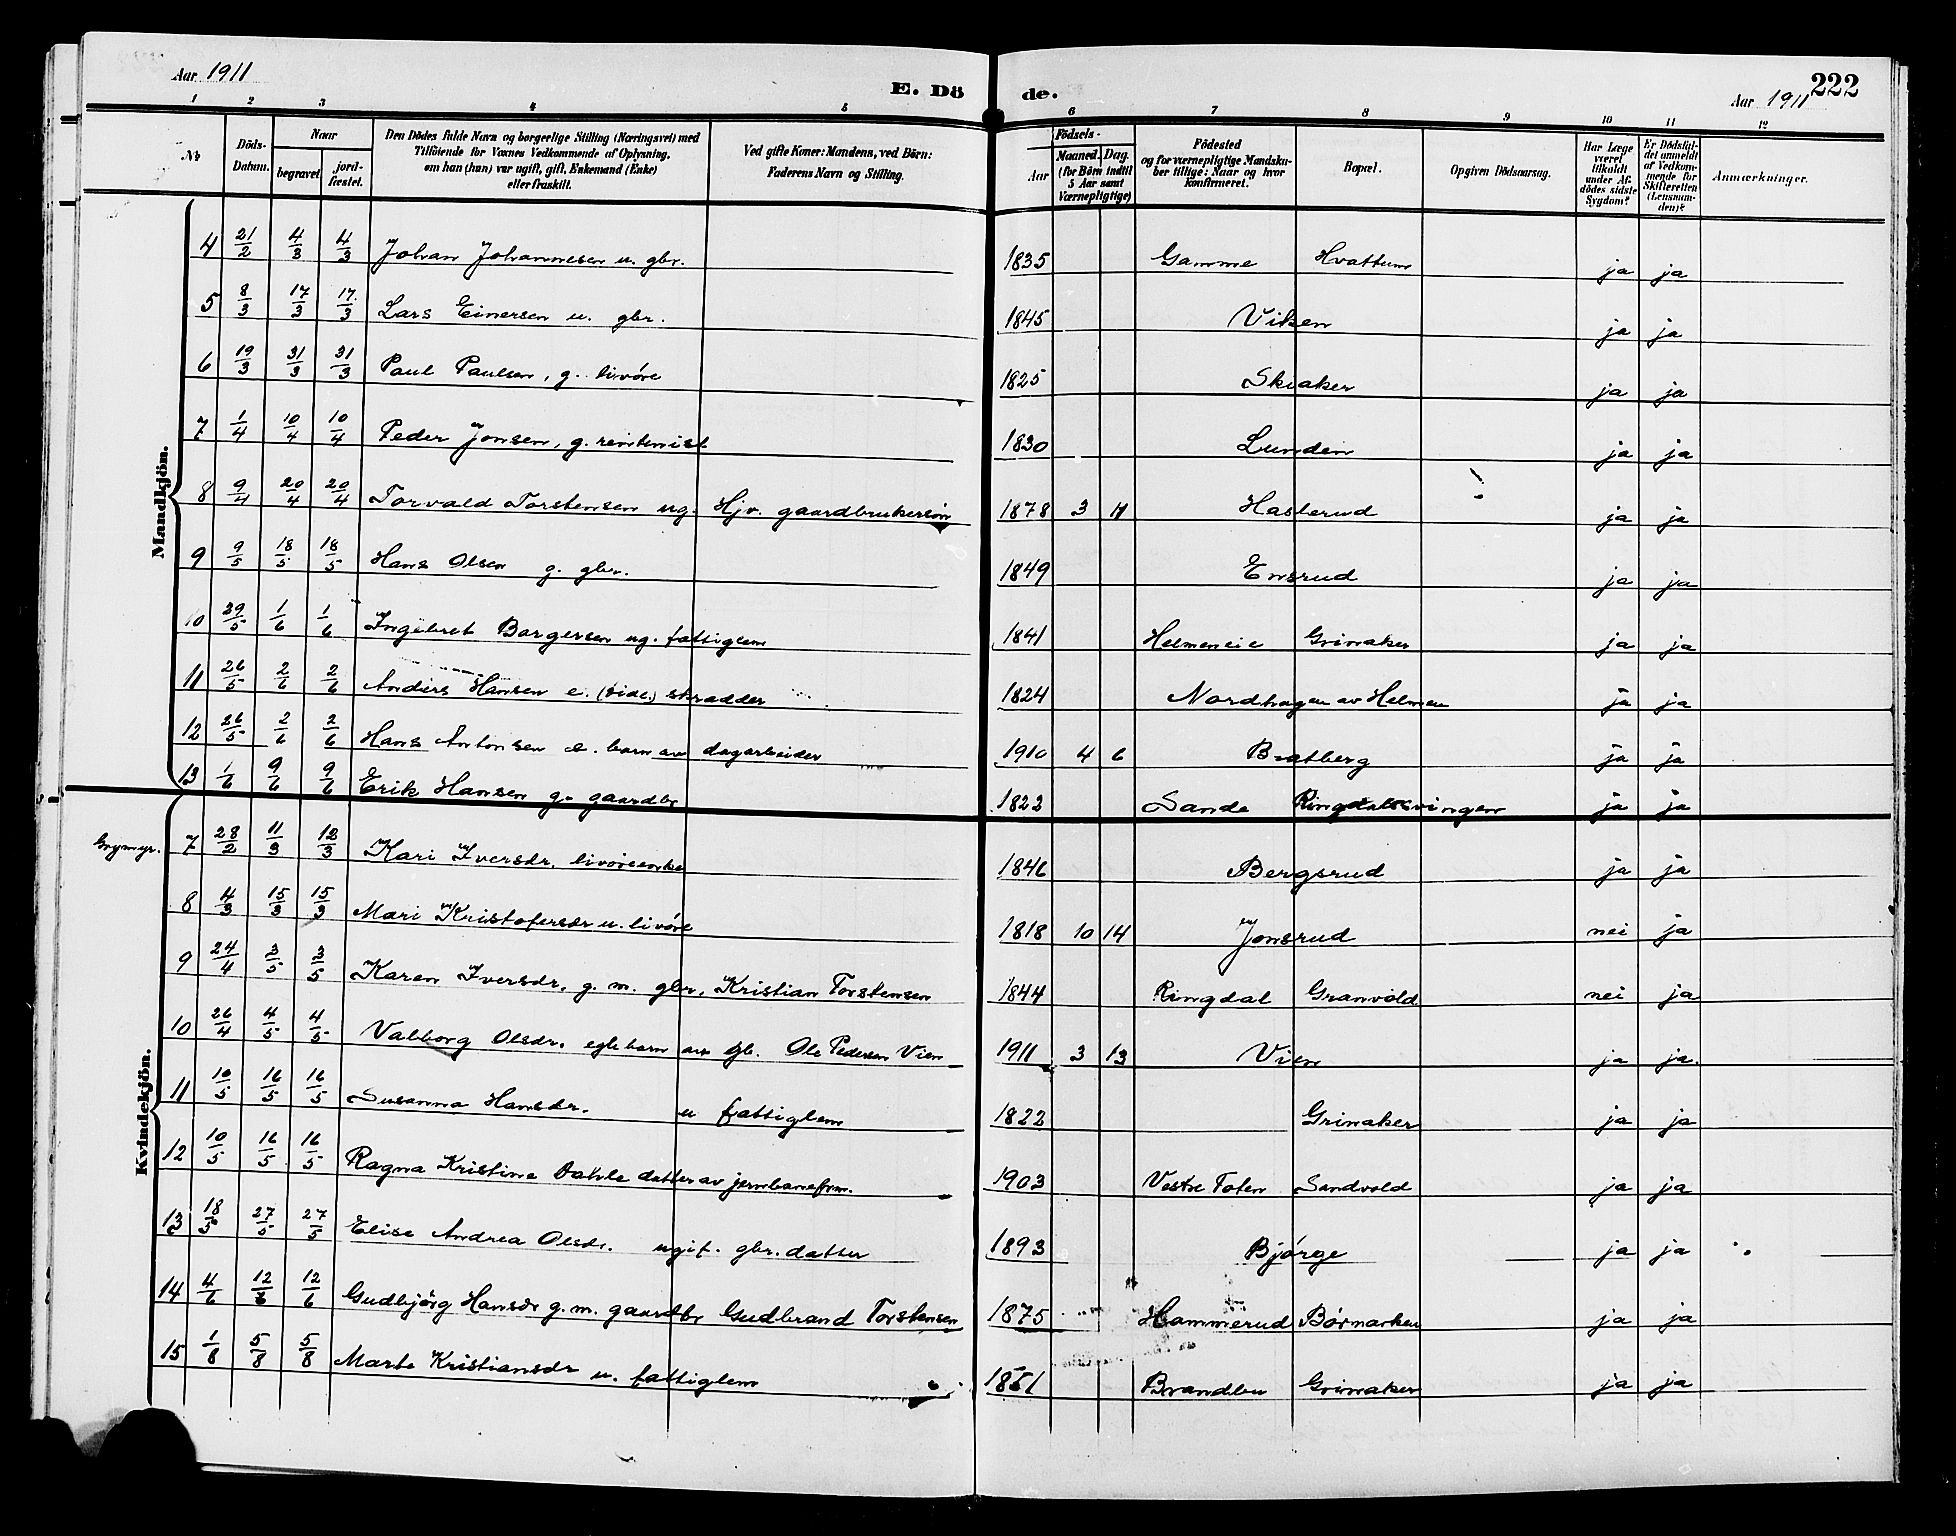 Aar 1911
E. Dö
de.
Aar 1911
222
1 2 3 4 5 6 7 8 9 10 11 12
No
Döds-Datum.
Naar
begravet
jord-fæstet.
Den Dödes fulde Navn og borgerlige Stilling (Næringsvei) med Tilföiende for Voxnes Vedkommende af Oplysning, om han (hun) var ugift, gift, Enkemand (Enke) eller fraskilt.
Ved gifte Koner: Mandens, ved Börn: Faderens Navn og Stilling.
Födsels-
Aar
Maaned. Dag. (for Börn indtil 5 Aar samt Værnepligtige)
Födested og for værnepligtige Mandskaber tillige: Naar og hvor konfirmeret.
Bopæl.
Opgiven Dödsaarsag.
Har Læge været tilkaldt under Afdödes sidste Sygdom?
Er Dödsfaldet anmeldt af Vedkommende for Skifteretten (Lensmanden)?
Anmærkninger.
Mandkjön.
4 21/2 4/3 4/3 Johan Johannesen u. gbr. 1835 Gamme Hvattum ja ja
5 8/3 17/3 17/3 Lars Einersen u. gbr. 1845 Viken ja ja
6 19/3 31/3 31/3 Paul Paulsen, g. livöre 1825 Skiaker ja ja
7 1/4 10/4 10/4 Peder Jonsen, g. rentenist 1830 Lunden ja ja
8 9/4 20/4 20/4 Torvald Torstensen ug. Hjv. gaardbrukersön 1878 3 11 Hasterud ja ja
9 9/5 18/5 18/5 Hans Olsen g. gbr. 1849 Ensrud ja ja
10 29/5 1/6 1/6 Ingebret Borgersen ug. fattiglem 1841 Helmeneie Grinaker ja ja
11 26/5 2/6 2/6 Anders Hansen e. skrædder 1824 Nordhagen av Helmen ja ja
12 26/5 2/6 2/6 Hans Antonsen e. barn av dagarbeider 1910 4 6 Bratberg ja ja
13 1/6 9/6 9/6 Erik Hansen g. gaardbr 1823 Sande Ringdalssvingen ja ja
Kvindekjön.
Grymyr. 7 28/2 11/3 12/3 Kari Iversdr. livöreenke 1846 Bergsrud ja ja
8 4/3 15/3 15/3 Mari Kristofersdr u. livöre 1818 10 14 Jonsrud nei ja
9 24/4 3/5 3/5 Karen Iversdr. g. m. gbr. Kristian Torstensen 1844 Ringdal Granvold nei ja
10 26/4 4/5 4/5 Valborg Olsdr. egte barn av gb. Ole Pedersen Vien 1911 3 13 Vien ja ja.
11 10/5 16/5 16/5 Susanna Hansdr. u fattiglem 1822 Grinaker ja ja
12 10/5 16/5 16/5 Ragna Kristine Dahle datter av jernbanefm. 1903 Vestre Toten Sandvold ja ja
13 18/5 27/5 27/5 Elise Andrea Olsdr. ugift. gbr. datter 1893 Bjørge ja ja
14 4/6 12/6 12/6 Gudbjörg Hansdr g. m. gaardbr Gudbrand Torstensen 1875 Hammerud Børmarken ja ja
15 1/8 5/8 5/8 Marte Kristiansdr u. fattiglem Brandbu Grinaker ja ja